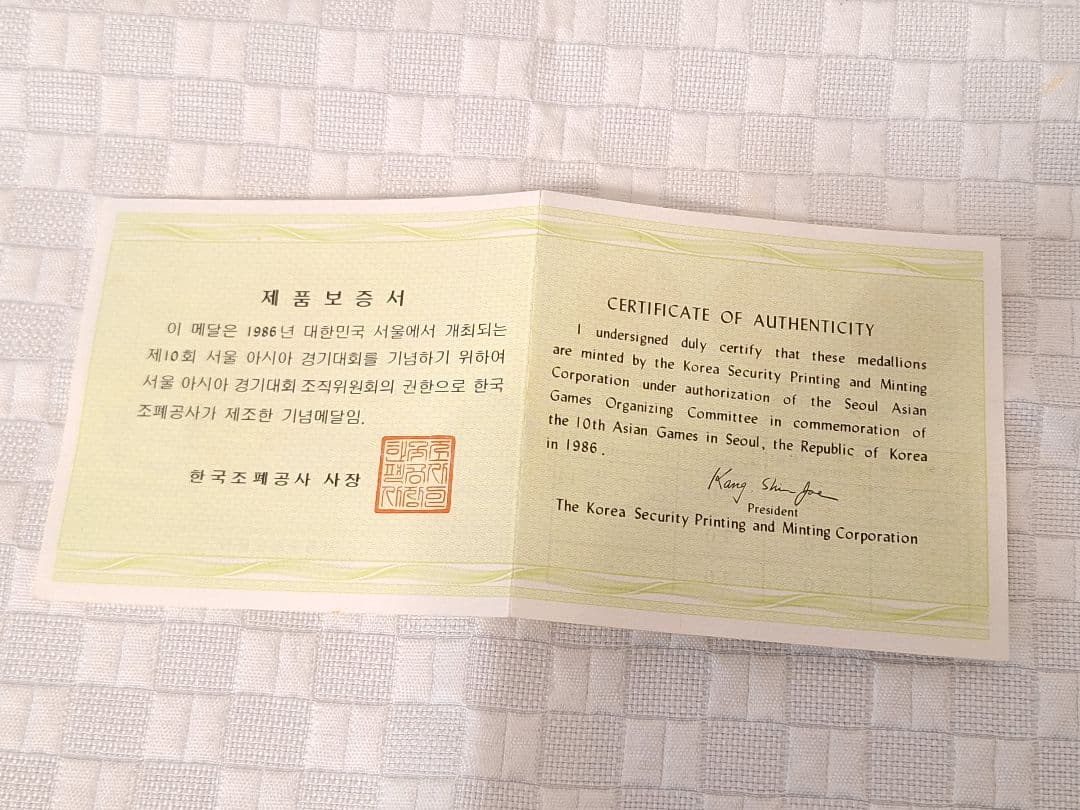 제품보증서
이 메달은 1986년 대한민국 서울에서 개최되는
제10회 서울 아시아 경기대회를 기념하기 위하여
서울 아시아 경기대회 조직위원회의 권한으로 한국
조폐공사가 제조한 기념메달임.
한국조폐공사 사장
CERTIFICATE OF AUTHENTICITY
I undersigned duly certify that these medallions
are minted by the Korea Security Printing and Minting
Corporation under authorization of the Seoul Asian
Games Organizing Committee in commemoration of
the 10th Asian Games in Seoul, the Republic of Korea
in 1986.
Kang Shin Joe
President
The Korea Security Printing and Minting Corporation